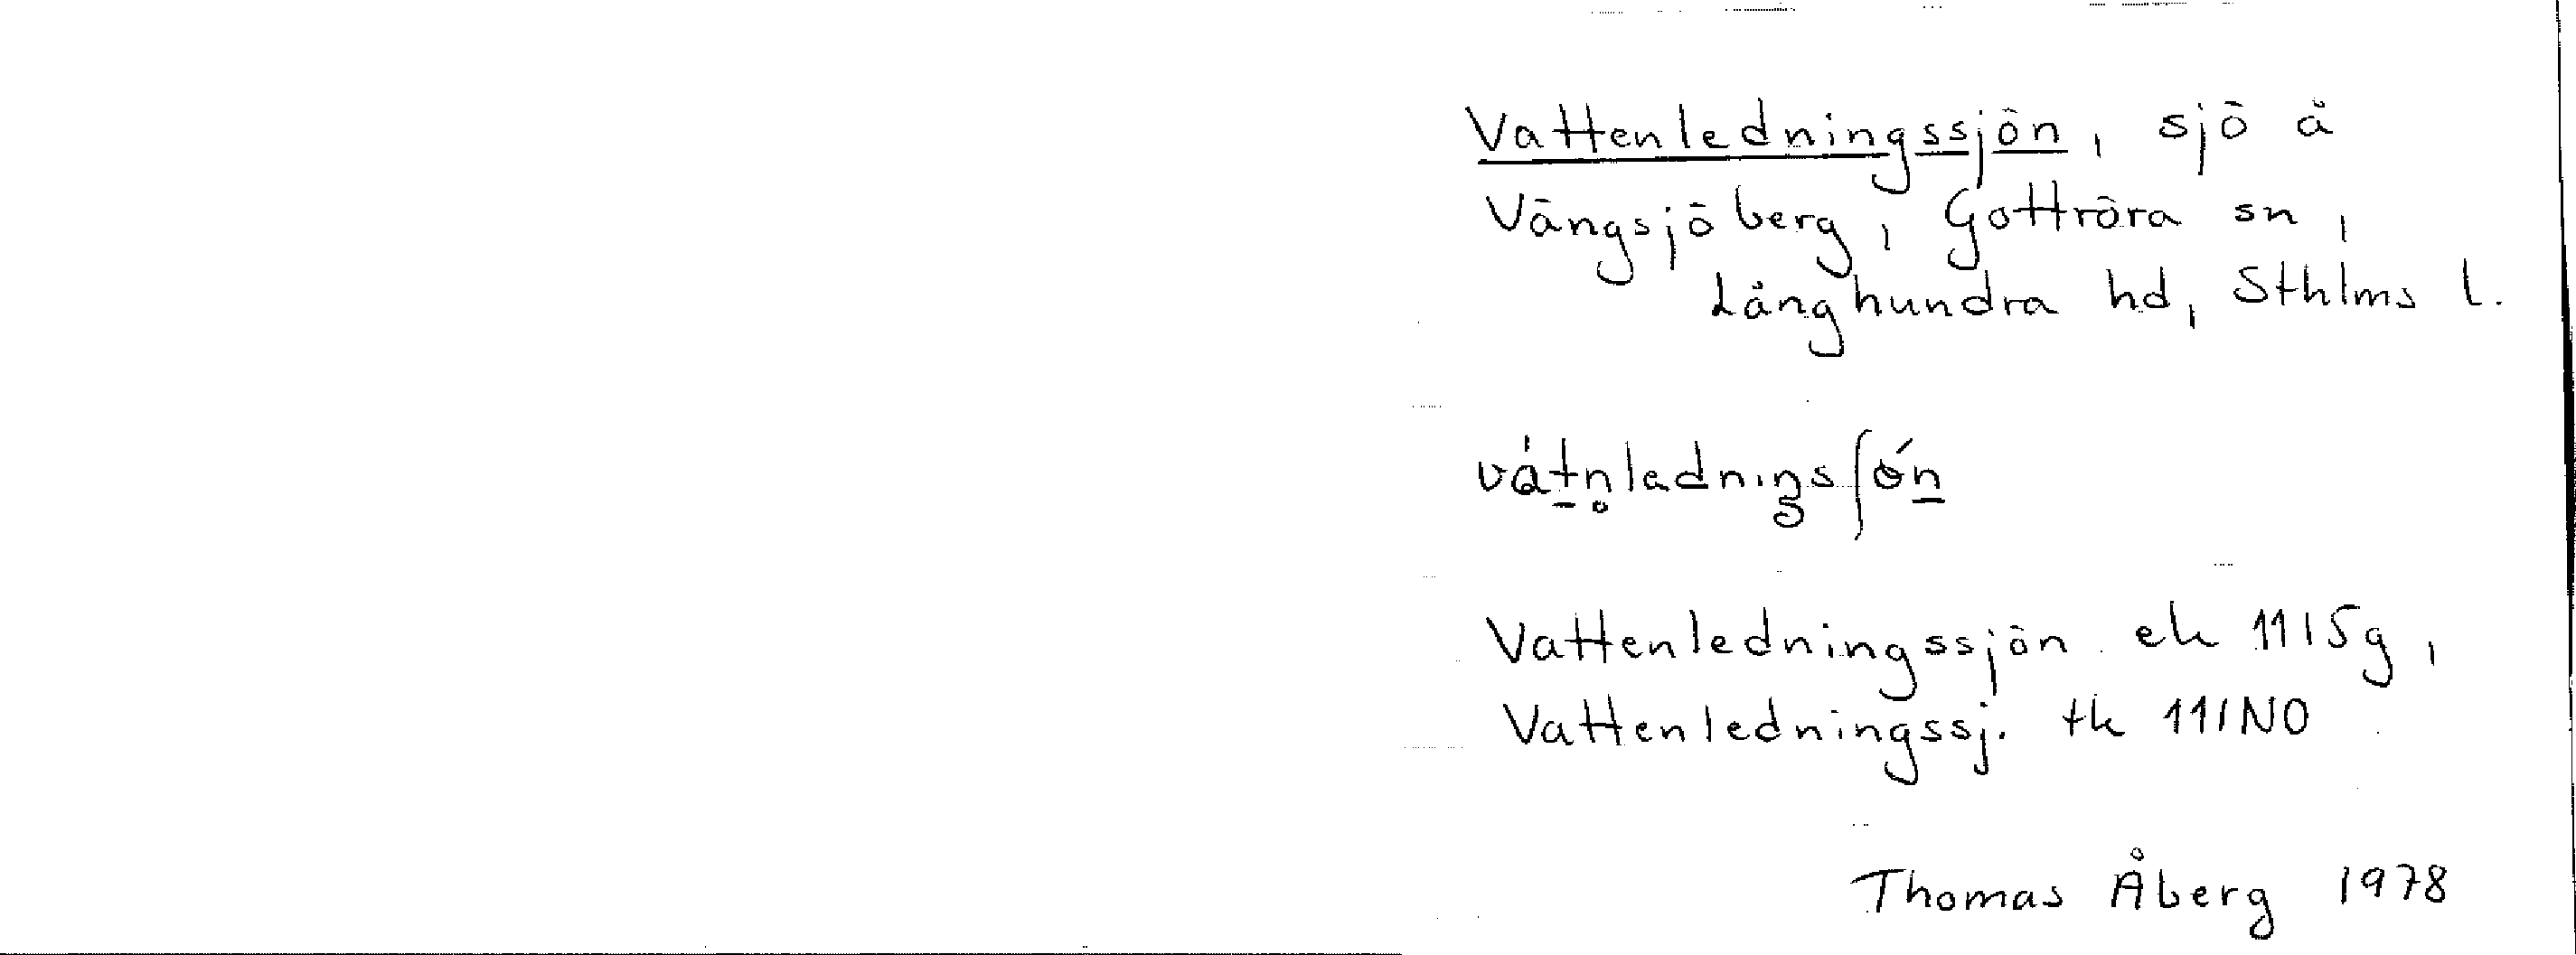 Vattenledningssjön, sjö å
Vängsjöberg, Gottröra sn,
Långhundra hd, Sthlms l.
Vattenledningssjön ek 11I5g,
Vattenledningssj. tk 11INO
Thomas Åberg 1978